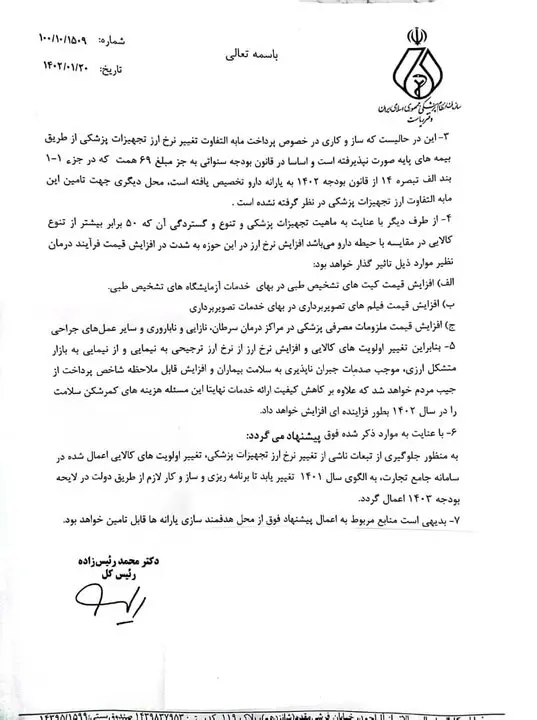 باسمه تعالی
شماره: ۱۰۰/۱۰/۱۵۰۹
تاریخ: ۱۴۰۲/۰۱/۲۰
سازمان نظام پزشکی جمهوری اسلامی ایران
دفتر ریاست
۳- این در حالیست که ساز و کاری در خصوص پرداخت مابه التفاوت تغییر نرخ ارز تجهیزات پزشکی از طریق
بیمه های پایه صورت نپذیرفته است و اساسا در قانون بودجه سنواتی به جز مبلغ ۶۹ همت که در جزء ۱-۱
بند الف تبصره ۱۴ از قانون بودجه ۱۴۰۲ به یارانه دارو تخصیص یافته است، محل دیگری جهت تامین این
مابه التفاوت ارز تجهیزات پزشکی در نظر گرفته نشده است .
۴- از طرف دیگر با عنایت به ماهیت تجهیزات پزشکی و تنوع و گستردگی آن که ۵۰ برابر بیشتر از تنوع
کالایی در مقایسه با حیطه دارو می‌باشد افزایش نرخ ارز در این حوزه به شدت در افزایش قیمت فرآیند درمان
نظیر موارد ذیل تاثیر گذار خواهد بود:
الف) افزایش قیمت کیت های تشخیص طبی در بهای خدمات آزمایشگاه های تشخیص طبی.
ب) افزایش قیمت فیلم های تصویربرداری در بهای خدمات تصویربرداری
ج) افزایش قیمت ملزومات مصرفی پزشکی در مراکز درمان سرطان، نازایی و ناباروری و سایر عمل‌های جراحی
۵- بنابراین تغییر اولویت های کالایی و افزایش نرخ ارز از نرخ ارز ترجیحی به نیمایی و از نیمایی به بازار
متشکل ارزی، موجب صدمات جبران ناپذیری به سلامت بیماران و افزایش قابل ملاحظه شاخص پرداخت از
جیب مردم خواهد شد که علاوه بر کاهش کیفیت ارائه خدمات نهایتا این مسئله هزینه های کمرشکن سلامت
را در سال ۱۴۰۲ بطور فزاینده ای افزایش خواهد داد.
۶- با عنایت به موارد ذکر شده فوق پیشنهاد می گردد:
به منظور جلوگیری از تبعات ناشی از تغییر نرخ ارز تجهیزات پزشکی، تغییر اولویت های کالایی اعمال شده در
سامانه جامع تجارت، به الگوی سال ۱۴۰۱ تغییر یابد تا برنامه ریزی و ساز و کار لازم از طریق دولت در لایحه
بودجه ۱۴۰۳ اعمال گردد.
۷- بدیهی است منابع مربوط به اعمال پیشنهاد فوق از محل هدفمند سازی یارانه ها قابل تامین خواهد بود.
دکتر محمد رئیس‌زاده
رئیس کل